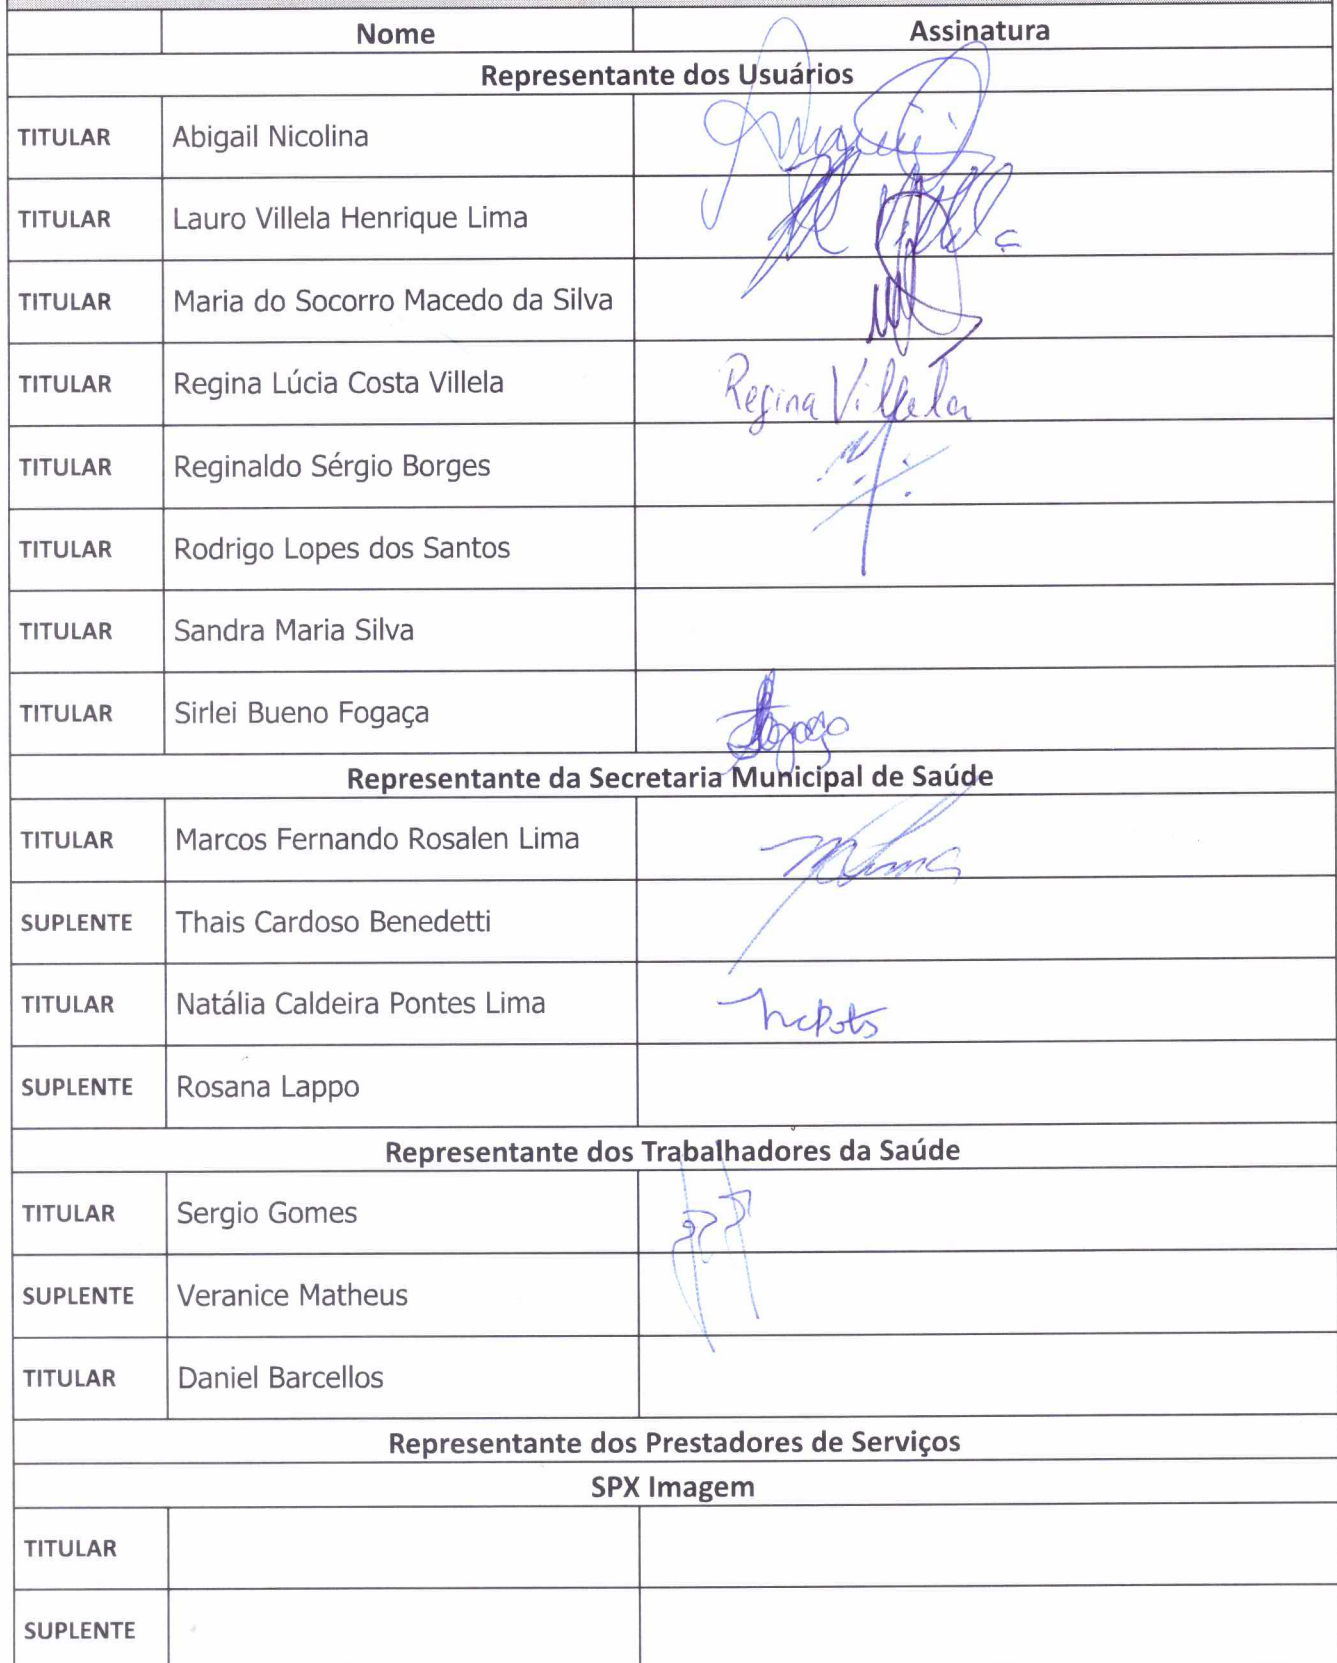 Nome Assinatura
Representante dos Usuários
TITULAR Abigail Nicolina
TITULAR Lauro Villela Henrique Lima
TITULAR Maria do Socorro Macedo da Silva
TITULAR Regina Lúcia Costa Villela Regina Villela
TITULAR Reginaldo Sérgio Borges
TITULAR Rodrigo Lopes dos Santos
TITULAR Sandra Maria Silva
TITULAR Sirlei Bueno Fogaça
Representante da Secretaria Municipal de Saúde
TITULAR Marcos Fernando Rosalen Lima
SUPLENTE Thais Cardoso Benedetti
TITULAR Natália Caldeira Pontes Lima
SUPLENTE Rosana Lappo
Representante dos Trabalhadores da Saúde
TITULAR Sergio Gomes
SUPLENTE Veranice Matheus
TITULAR Daniel Barcellos
Representante dos Prestadores de Serviços
SPX Imagem
TITULAR
SUPLENTE